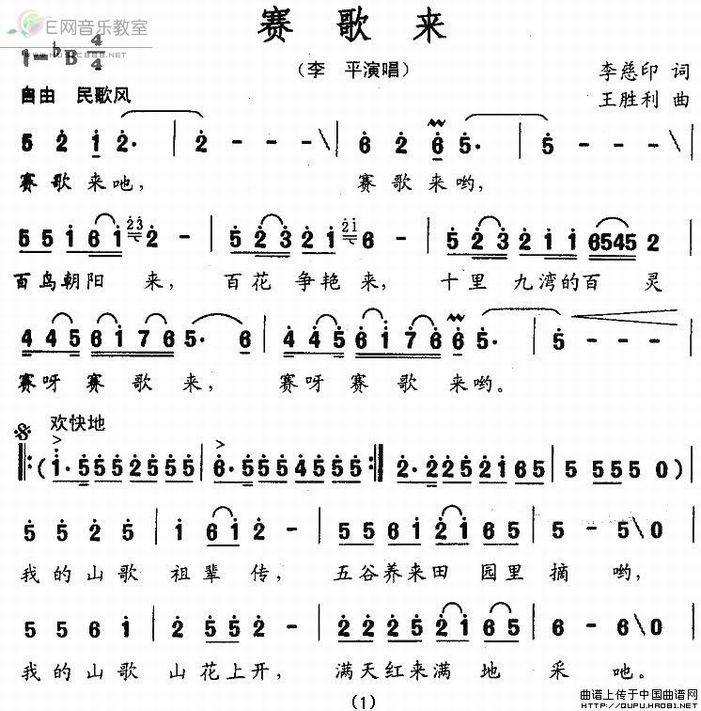 E网音乐教室
赛歌来
1=♭B 4/4
（李 平演唱）
李慈印 词
自由 民歌风
王胜利 曲
5 2 1 2· | 2 - - \ | 6 2 6 5· | 5 - - \ |
赛歌来吔， 赛歌来哟，
5 5 1 6 1 2 3 2 - | 5 2 3 2 1 2 1 6 - | 5 2 3 2 1 1 6545 2
百鸟朝阳 来， 百花争艳来， 十里九湾的百灵
4 4 5 6 1 7 6 5· 6 | 4 4 5 6 1 7 6 6 5· | 5 - - -
赛呀赛歌来， 赛呀赛歌来哟。
欢快地
𝄋 ‖: ( 1·5 5 5 2 5 5 5 | 6·5 5 5 4 5 5 5 :‖ 2·2 2 5 2 1 6 5 | 5 5 5 5 0 ) |
5 5 2 5 | 1 6 1 2 - | 5 5 6 1 2 1 6 5 | 5 - 5 \ 0 |
我的山歌祖辈传， 五谷养来田园里摘哟，
5 5 6 1 | 2 5 5 2 - | 2 2 2 5 2 1 6 5 | 5 - 5 \ 0 |
我的山歌山花上开， 满天红来满地采吔。
(1)
曲谱上传于中国曲谱网
HTTP://QUPU.HAO81.NET